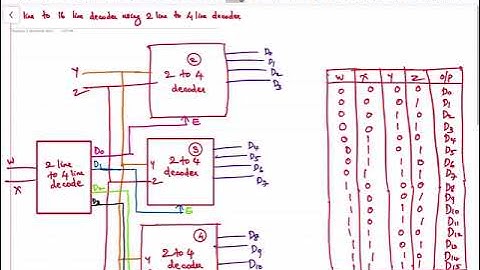 line to 16 line decoder using 2 line to 4 line decoder
2
Y
2 to 4
decoder
Z
D0
D1
D2
D3
E
W
X
2 line
to 4 line
decode
D0
D1
D2
D3
3
Y
2 to 4
decoder
Z
D4
D5
D6
D7
E
4
2 to 4
decoder
D8
D9
D10
W X Y Z O/P
0 0 0 0 D0
0 0 0 1 D1
0 0 1 0 D2
0 0 1 1 D3
0 1 0 0 D4
0 1 0 1 D5
0 1 1 0 D6
0 1 1 1 D7
1 0 0 0 D8
1 0 0 1 D9
1 0 1 0 D10
1 0 1 1 D11
1 1 0 0 D12
1 1 0 1 D13
1 1 1 0 D14